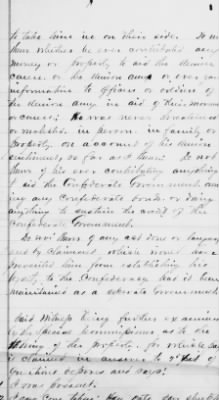 to take him in on their side. Do not
know whether he ever contributed any
money or property to aid the Union
cause or the Union army or ever gave
information to officers or soldiers of
the Union army in aid of their movements
or cause. He was never threatened
or molested in person in family or
property on account of his Union
sentiment, so far as I know. Do not
know of his ever contributing anything
to aid the Confederate Government, own
ing any Confederate bonds or doing
anything to sustain the credit of the
Confederate Government.
Do not know of any act done or language
used by Claimant which would have
prevented him from establishing his
loyalty to the Confederacy had it been
maintained as a separate Government.
Said witness being further examined
by the Special Commissioner as to the
taking of the property for which pay
is claimed in answer to 2nd set of
questions deposes and says:
I was present.